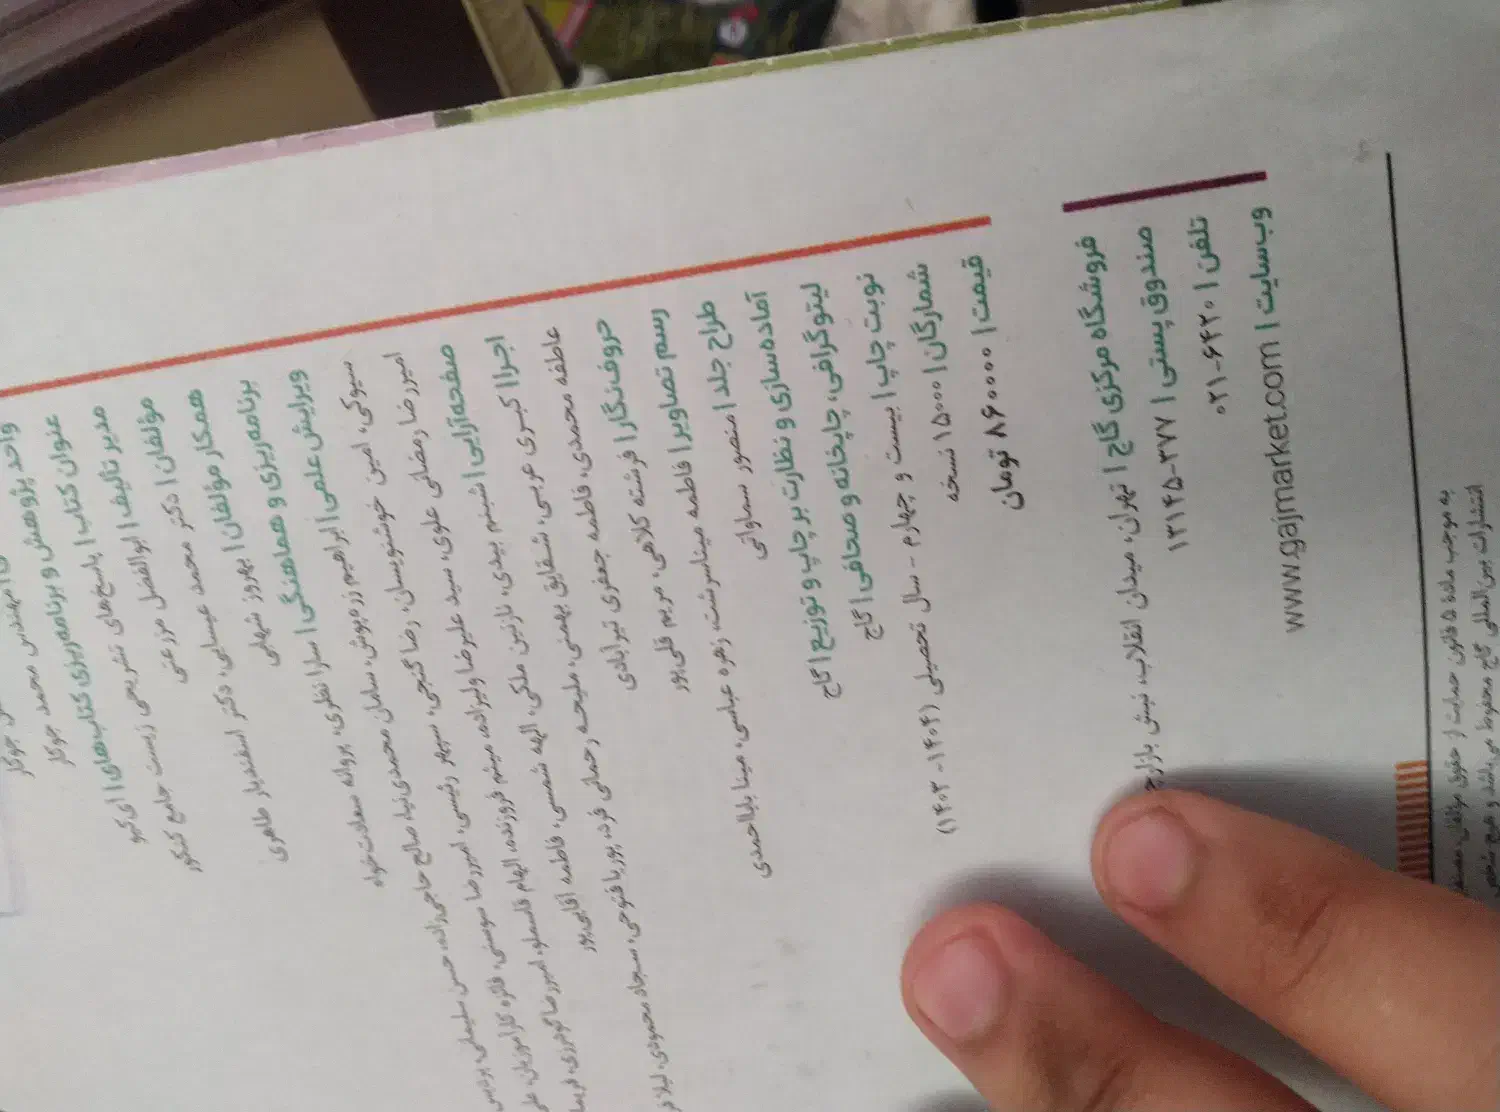 مهندس محمد جوکار
واحد پژوهش و برنامه‌ریزی کتاب‌های | آی‌کیو
عنوان کتاب | پاسخ‌های تشریحی زیست جامع کنکور
مدیر تألیف | ابوالفضل مزرعتی
مؤلفان | دکتر محمد عیسایی، دکتر اسفندیار طاهری
همکار مؤلفان | بهروز شهابی
برنامه‌ریزی و هماهنگی | سارا نظری، پروانه سعادت‌خواه
ویرایش علمی | ابراهیم زره‌پوش، سامان محمدی‌نیا، صالح حاجی‌زاده، حسن سلیمانی،
سیوکی، امین خوشنویسان، رضا گنجی، سپهر رئیسی، امیررضا سوسنی، فائزه کارآموزیان،
امیررضا رمضانی علوی، سید علیرضا ولیزاده، میثم فروزنده، الهام قاسملو، امیررضا گودرزی،
صفحه‌آرایی | شبنم بیدی، نازنین ملکی، الهه شمسی، فاطمه آقایی‌پور
اجرا | کبری عربی، شقایق بهمنی، ملیحه رحمانی فرد، پوریا فتوحی، سجاد محمودی،
عاطفه محمدی، فاطمه جعفری تیرآبادی
حروف‌نگار | فرشته کلاهی، مریم قلی‌پور
رسم تصاویر | فاطمه میناسرشت، زهره عباسی، مینا باباا‌حمدی
طراح جلد | منصور سماواتی
آماده‌سازی و نظارت بر چاپ و توزیع | گاج
لیتوگرافی، چاپخانه و صحافی | گاج
نوبت چاپ | بیست و چهارم - سال تحصیلی (۱۴۰۴-۱۴۰۳)
شمارگان | ۱۵۰۰۰ نسخه
قیمت | ۸۶۰۰۰۰ تومان
فروشگاه مرکزی گاج | تهران، میدان انقلاب، نبش بازارچه
صندوق پستی | ۳۷۷-۱۳۱۴۵
تلفن | ۰۲۱-۶۴۲۰
وب‌سایت | www.gajmarket.com
به موجب ماده ۵ قانون حمایت از حقوق مؤلفان،
انتشارات بین‌المللی گاج محفوظ می‌باشد و هیچ شخص